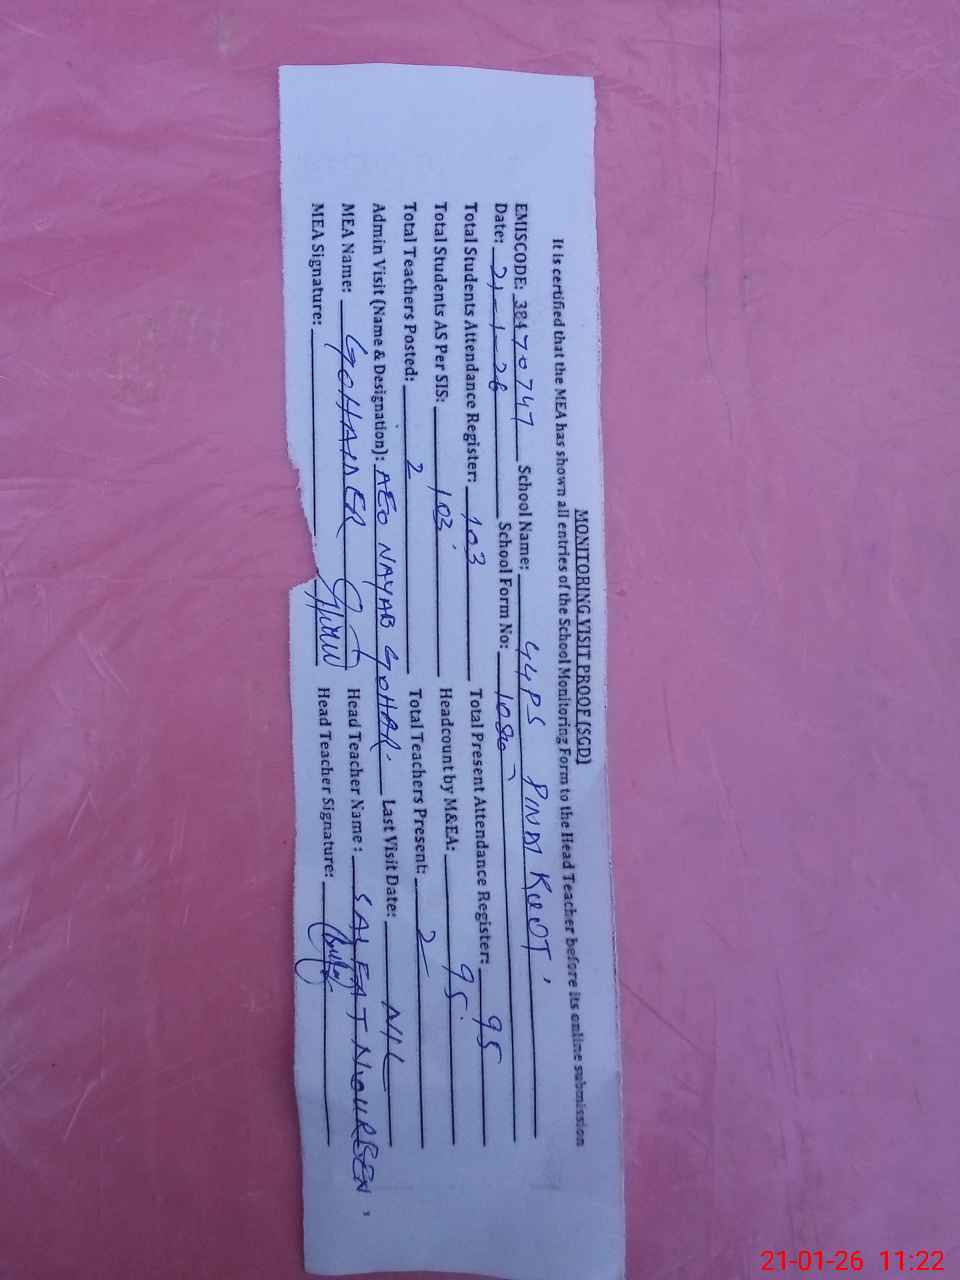 MONITORING VISIT PROOF [SGD]
It is certified that the MEA has shown all entries of the School Monitoring Form to the Head Teacher before its online submission
EMISCODE: 38470747 School Name: GGPS PINDI KOOT
Date: 21-1-26 School Form No:
Total Students Attendance Register: 103 Total Present Attendance Register: 95
Total Students AS Per SIS: 103 Headcount by M&EA: 95
Total Teachers Posted: 2 Total Teachers Present: 2
Admin Visit (Name & Designation): AEO NAYAB GOHAR Last Visit Date: NIL
MEA Name: Head Teacher Name:
MEA Signature: Head Teacher Signature:
21-01-26 11:22